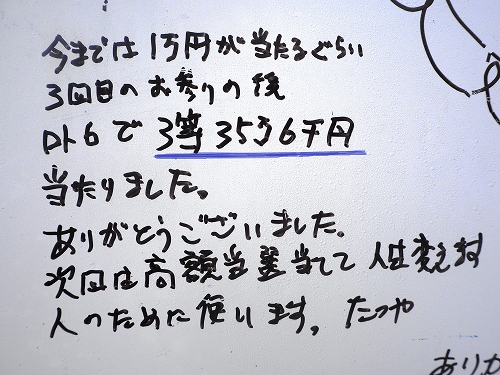 今までは1万円が当たるぐらい
3回目のお参りの後
ロト6で3等35万6千円
当たりました。
ありがとうございました。
次回は高額当選当てて 人生変えます
人のために使います。たつや
あり